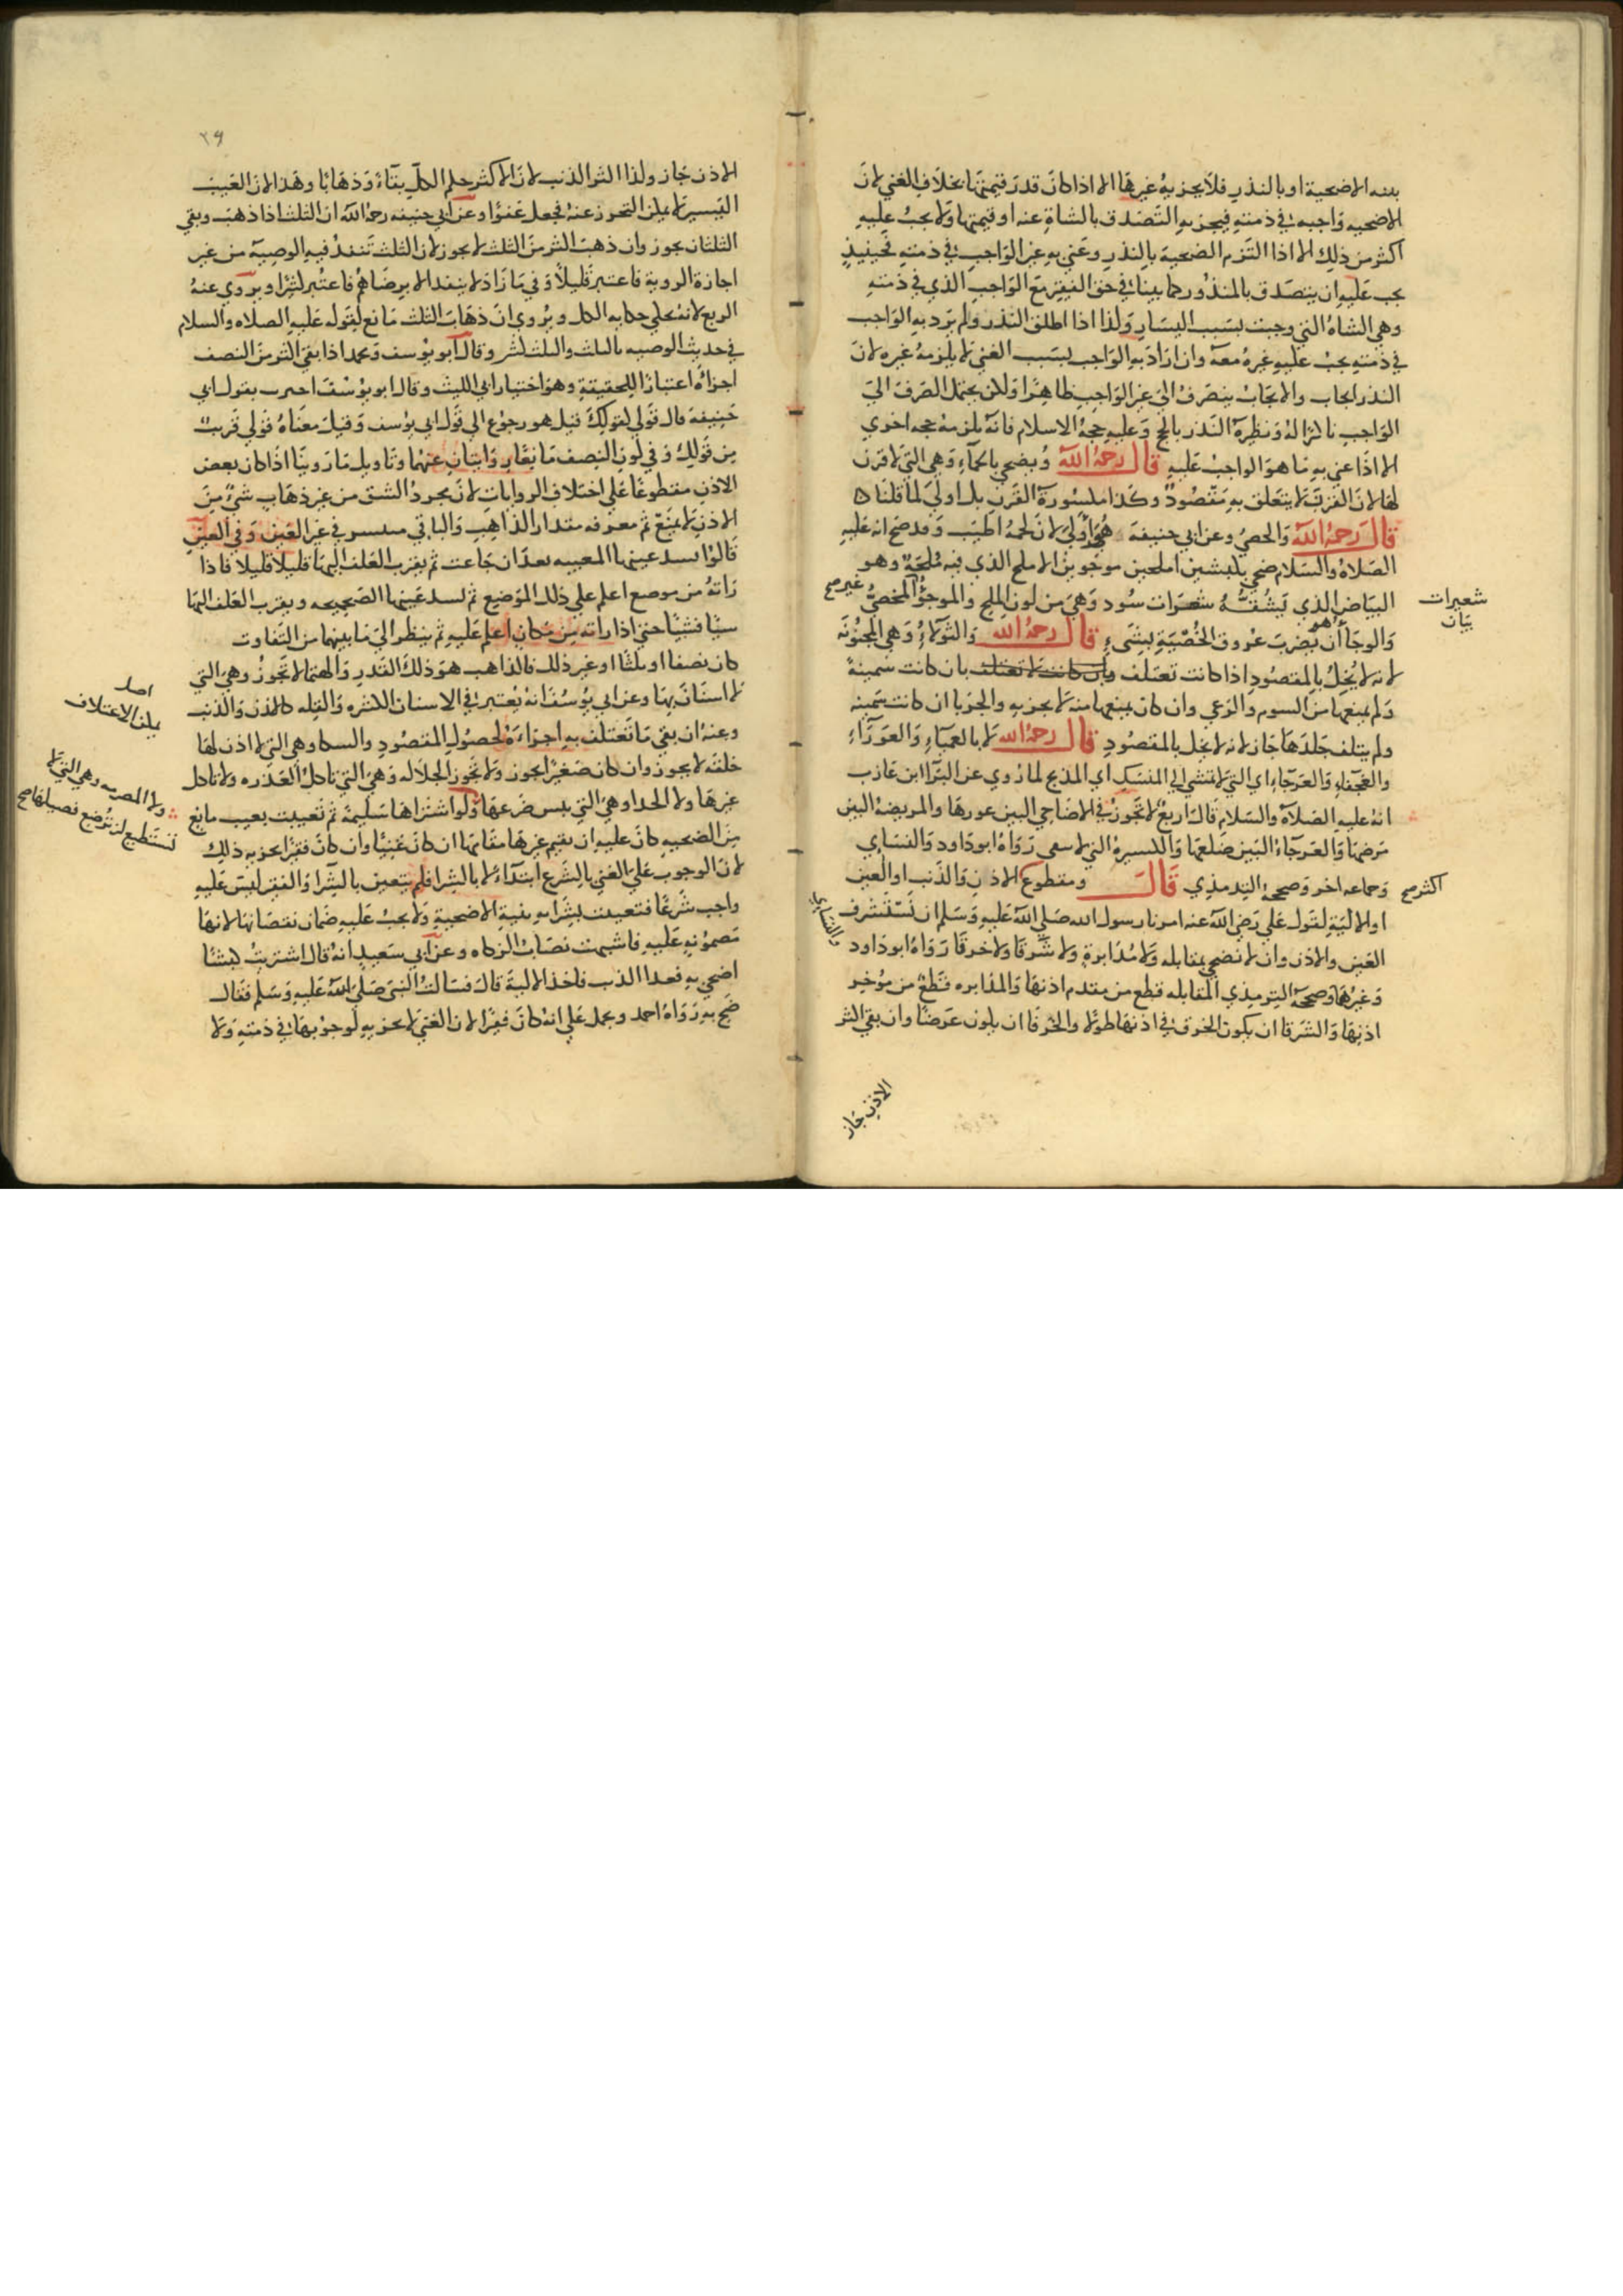 بنية الاضحية او بالنذر فلا يجزيه غيرها الا اذا كان قدر قيمتها بخلاف الغني لان
الاضحيه واجبه في ذمته فيجزيه التصدق بالشاة عنه او قيمتها ولا يجب عليه
اكثر من ذلك الا اذا التزم الضحية بالنذر وعني به غير الواجب في ذمته فحينيذ
يجب عليه ان يتصدق بالمنذور كما بينا في حق الفقير مع الواجب الذي في ذمته
وهي الشاة التي وجبت بسبب اليسار ولذا اذا اطلق النذر ولم يرد به الواجب
في ذمته يجب عليه غيره معه وان اراد به الواجب بسبب الغني لا يلزمه غيره لان
النذر ايجاب والايجاب ينصرف الى غير الواجب ظاهرا ولكن يحتمل الصرف الى
الواجب تاكيدا له ونظيره النذر بالحج وعليه حجة الاسلام فانه يلزمه حجه اخري
الا اذا عني به ما هو الواجب عليه قال رحمه الله ويضحي بالجماء وهي التي لا قرن
لها لان القرن لا يتعلق به مقصود وكذا مكسورة القرن بل اولى لما قلنا
قال رحمه الله والخصي وعن ابي حنيفة هو اولى لان لحمه اطيب وقد صح انه عليه
الصلاة والسلام ضحي بكبشين املحين موجوين الاملح الذي فيه ملحة وهو
البياض الذي يشقه شعرات سود وهي من لون الملح والموجؤ المخصي
غير صح
شعيرات
بيان
والوجا هو أن يضرب عروق الخصية بشيء قال رحمه الله والثولاء وهي المجنونه
لانه لا يخل بالمقصود اذا كانت تعتلف وان كانت لا تعتلف بان كانت سمينة
ولم يمنعها من السوم والرعي وان كان يمنعها منه لا يجزيه والجربا ان كانت سمينه
ولم يتلف جلدها جاز لانه لا يخل بالمقصود قال رحمه الله لا بالعمياء والعوراء
والعجفاء والعرجاء اي التي لا تمشي الى المنسك اي المذبح لما روي عن البرا ابن عازب
انه عليه الصلاة والسلام قال اربع لا تجوز في الاضاحي البين عورها والمريضة البين
مرضها والعرجاء البين ضلعها والكسيرة التي لا تنقي رواه ابو داود والنسائ
وجماعه اخر وصححه الترمذي قال ومقطوع الاذن والذنب او العين
اكثر صح
او الالية لقول علي رضي الله عنه امرنا رسول الله صلى الله عليه وسلم ان نستشرف
والنسائي
العين والاذن وان لا نضحي بمقابله ولا مدابرة ولا شرقا ولا خرقا رواه ابو داود
وغيرهما وصححه الترمذي المقابله قطع من مقدم اذنها والمدابره قطع من مؤخر
اذنها والشرقا ان يكون الخرق في اذنها طولا والخرقا ان يكون عرضا وان بقي اكثر
الاذن جاز
٢٩
الاذن جاز ولذا اكثر الذنب لان الاكثر حكم الكل بقاء وذهابا وهذا لان العيب
اليسير لا يمكن التحرز عنه فجعل عفوا وعن ابي حنيفه رحمه الله ان الثلث اذا ذهب وبقي
الثلثان يجوز وان ذهب اكثر من الثلث لا يجوز لان الثلث تنفذ فيه الوصية من غير
اجازة الورثة فاعتبر قليلا وفي ما زاد لا ينفد الا برضاهم فاعتبر كثيرا ويروي عنه
الربع لانه يحكي حكاية الكل ويروي ان ذهاب الثلث مانع لقوله عليه الصلاه والسلام
في حديث الوصيه بالثلث والثلث كثير وقال ابو يوسف ومحمد اذا بقي اكثر من النصف
اجزاه اعتبارا للحقيقة وهو اختيار ابي الليث وقال ابو يوسف اخبرت بقول ابي
حنيفة قال قولي كقولك قيل هو رجوع الي قول ابي يوسف وقيل معناه قولي قريب
من قولك وفي كون النصف مانعا روايتان عنهما وتاويل ما روينا اذا كان بعض
الاذن مقطوعا على اختلاف الروايات لان مجرد الشق من غير ذهاب شيء من
الاذن لا يمنع ثم معرفه مقدار الذاهب والباقي متيسر في غير العين وفي العين
قالوا تسد عينها المعيبه بعد ان جاعت ثم يقرب العلف اليها قليلا قليلا فاذا
راته من موضع اعلم علي ذلك الموضع ثم تسد عينها الصحيحه ويقرب العلف اليها
شيا فشيا حتي اذا راته من مكان اعلم عليه ثم ينظر الى ما بينهما من التفاوت
كان نصفا او ثلثا او غير ذلك فالذاهب هو ذلك القدر والهتما لا تجوز وهي التي
لا اسنان بها وعن ابي يوسف انه يعتبر في الاسنان الكثره والقله كالاذن والذنب
اصل
يمكن الاعتلاف
وعنه ان بقي ما تعتلف به اجزاءه لحصول المقصود والسكا وهي التي لا اذن لها
خلقه لا يجوز وان كان صغيرا يجوز ولا تجوز الجلاله وهي التي تاكل العذره ولا تاكل
غيرها ولا الجدا وهي التي يبس ضرعها ولو اشتراها سليمة ثم تعيبت بعيب مانع
ولا المصرمه وهي التي لا
تستطيع ان ترضع فصيلها صح
من الضحيه كان عليه ان يقيم غيرها مقامها ان كان غنيا وان كان فقيرا يجزيه ذلك
لان الوجوب على الغني بالشرع ابتداء لا بالشرا فلم يتعين بالشرا والفقير ليس عليه
واجب شرعا فتعينت بشرايه بنية الاضحية ولا يجب عليه ضمان نقصانها لانها
مضمونه عليه فاشبهت نصاب الزكاه وعن ابي سعيد انه قال اشتريت كبشا
اضحي به فعدا الذيب فاخذ الالية قال فسالت النبي صلى الله عليه وسلم فقال
ضح به رواه احمد ويحمل علي انه كان فقيرا لان الغني لا يجزيه لوجوبها في ذمته ولا